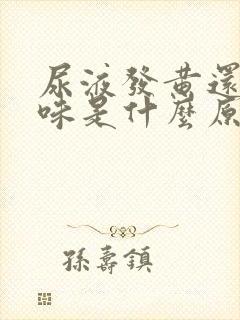 尿液發黃還
味是什麼原
孫壽鎮